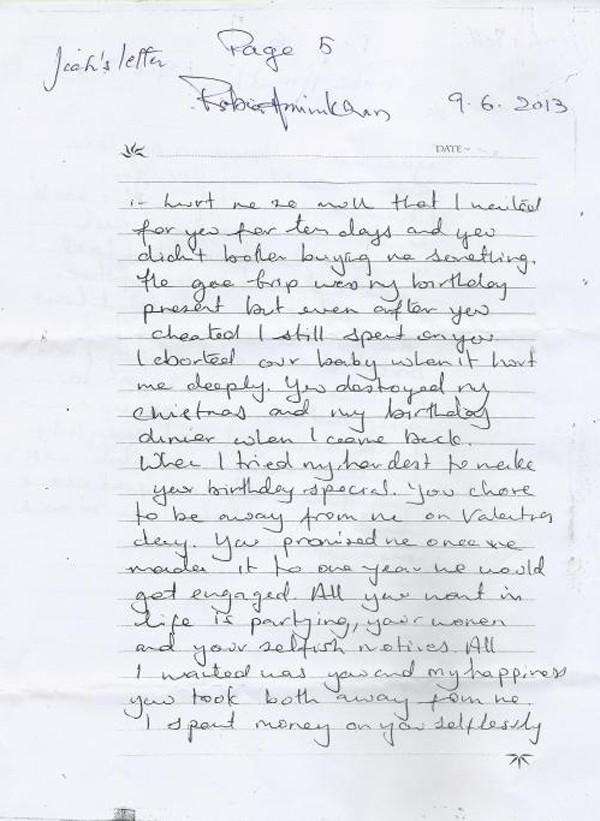 Page 5
Jiah's letter
Rabia Amin Khan
9.6.2013
DATE
it hurt me so much that I waited
for you for ten days and you
didn't bother buying me something.
The goa trip was my birthday
present but even after you
cheated I still spent on you
I aborted our baby when it hurt
me deeply. You destroyed my
christmas and my birthday
dinner when I came back.
When I tried my hardest to make
your birthday special. You chose
to be away from me on Valentines
day. You promised me once we
made it to one year we would
get engaged. All you want in
life is partying, your women
and your selfish motives. All
I wanted was you and my happiness
you took both away from me.
I spent money on you selflessly